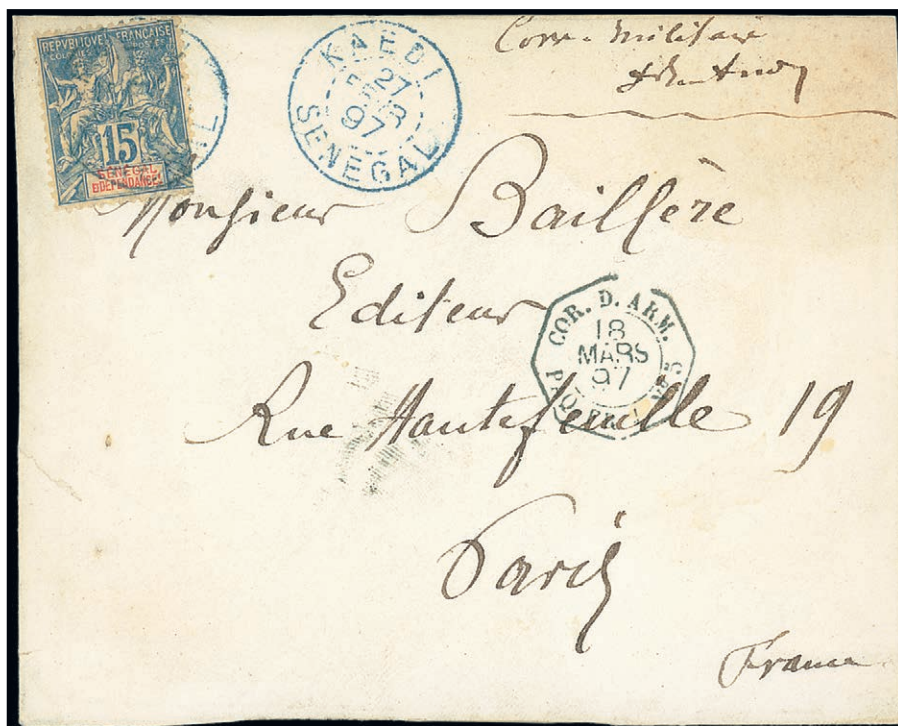 REPVBLIQVE FRANÇAISE
COLONIES POSTES
15
SÉNÉGAL
ET DÉPENDANCES
KAËDI
27
97
SENEGAL
Militaire
Monsieur Baillère
Editeur
COR. D. ARM.
18
MARS
97
PAQ. FR. N° 5
Rue Hautefeuille 19
Paris
France